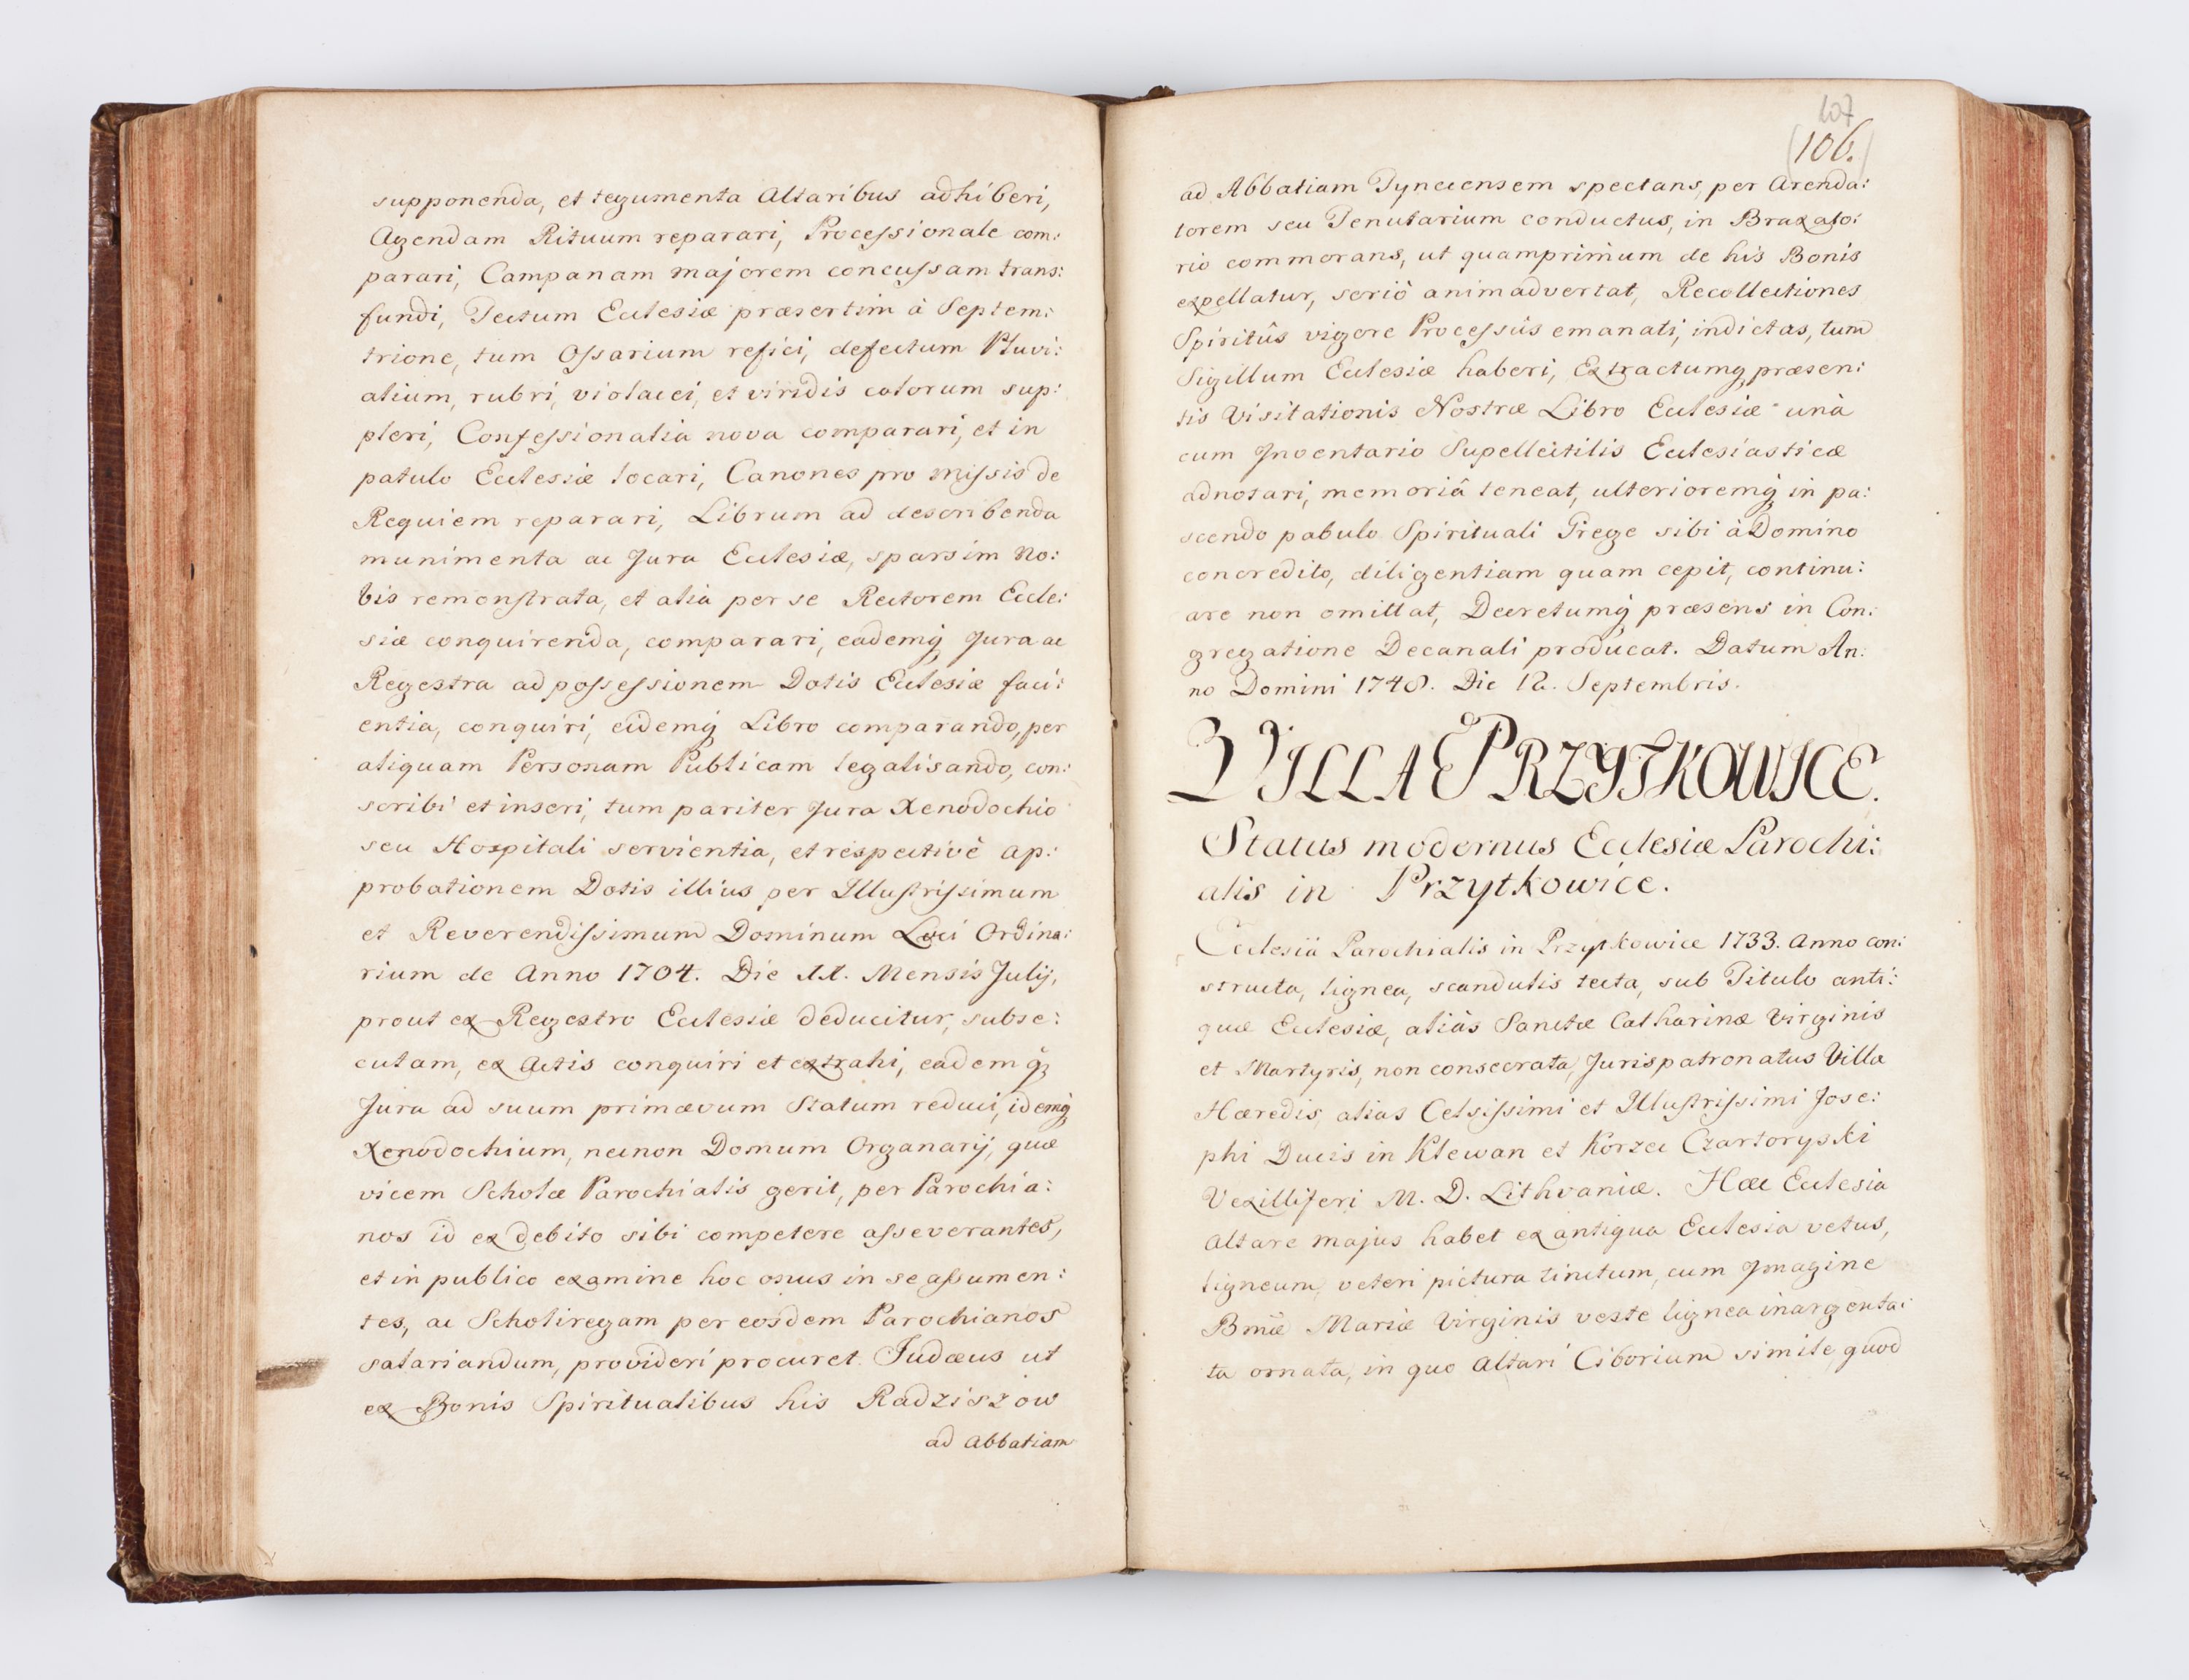 supponenda, et tegumenta Altaribus adhiberi,
Agendam Rituum reparari, Processionale com:
parari, Campanam majorem concussam trans:
fundi, Tectum Ecclesiæ præsertim à Septem:
trione, tum Ossarium refici, defectum Pluvi:
alium, rubri, violacei, et viridis colorum sup:
pleri, Confessionalia nova comparari, et in
patulo Ecclesiæ locari, Canones pro Missis de
Requiem reparari, Librum ad describenda
munimenta ac Jura Ecclesiæ, sparsim No:
bis remonstrata, et alia per se Rectorem Eccle:
siæ conquirenda, comparari, eademq́ Jura ac
Regestra ad possessionem Dotis Ecclesiæ faci:
entia, conquiri, eidemq́ Libro comparando, per
aliquam Personam Publicam legalisando, con:
scribi et inseri, tum pariter Jura Xenodochio
seu Hospitali servientia, et respectivè ap:
probationem Dotis illius per Illustrissimum
et Reverendissimum Dominum Loci Ordina:
rium de Anno 1704. Die 11. Mensis Julij,
prout ex Regestro Ecclesiæ deducitur, subse:
cutam, ex Actis conquiri et extrahi, eademq́
Jura ad suum primævum Statum reduci, idemq́
Xenodochium, necnon Domum Organarij, quæ
vicem Scholæ Parochialis gerit, per Parochia:
nos id ex debito sibi competere asseverantes,
et in publico examine hoc onus in se assumen:
tes, ac Scholiregam per eosdem Parochianos
salariandum, provideri procuret. Judæus ut
ex Bonis Spiritualibus his Radziszow
ad Abbatiam
107
(106.)
ad Abbatiam Tynecensem spectans, per Arenda:
torem seu Tenutarium conductus, in Braxato:
rio commorans, ut quamprimum de his Bonis
expellatur, seriò animadvertat, Recollectiones
Spiritûs vigore Processûs emanati, indictas, tum
Sigillum Ecclesiæ haberi, Extractumq́ præsen:
tis Visitationis Nostræ Libro Ecclesiæ unà
cum Inventario Supellectilis Ecclesiasticæ
adnotari, memoriâ teneat, ulterioremq́ in pa:
scendo pabulo Spirituali Grege sibi à Domino
concredito, diligentiam quam cepit, continu:
are non omittat, Decretumq́ præsens in Con:
gregatione Decanali producat. Datum An:
no Domini 1748. Die 12. Septembris.
VILLA PRZYTKOWICE.
Status modernus Ecclesiæ Parochi:
alis in Przytkowice.
Ecclesia Parochialis in Przytkowice 1733. Anno con:
structa, lignea, scandulis tecta, sub Titulo anti:
quæ Ecclesiæ, aliàs Sanctæ Catharinæ Virginis
et Martyris, non consecrata, Jurispatronatus Villæ
Hæredis, alias Celsissimi et Illustrissimi Jose:
phi Ducis in Klewan et Korzec Czartoryski
Vexilliferi M. D. Lithvaniæ. Hæc Ecclesia
Altare majus habet ex antiqua Ecclesia vetus,
ligneum, veteri pictura tinctum, cum Imagine
Bmæ Mariæ Virginis veste lignea inargenta:
ta ornata, in quo Altari Ciborium simile, quod